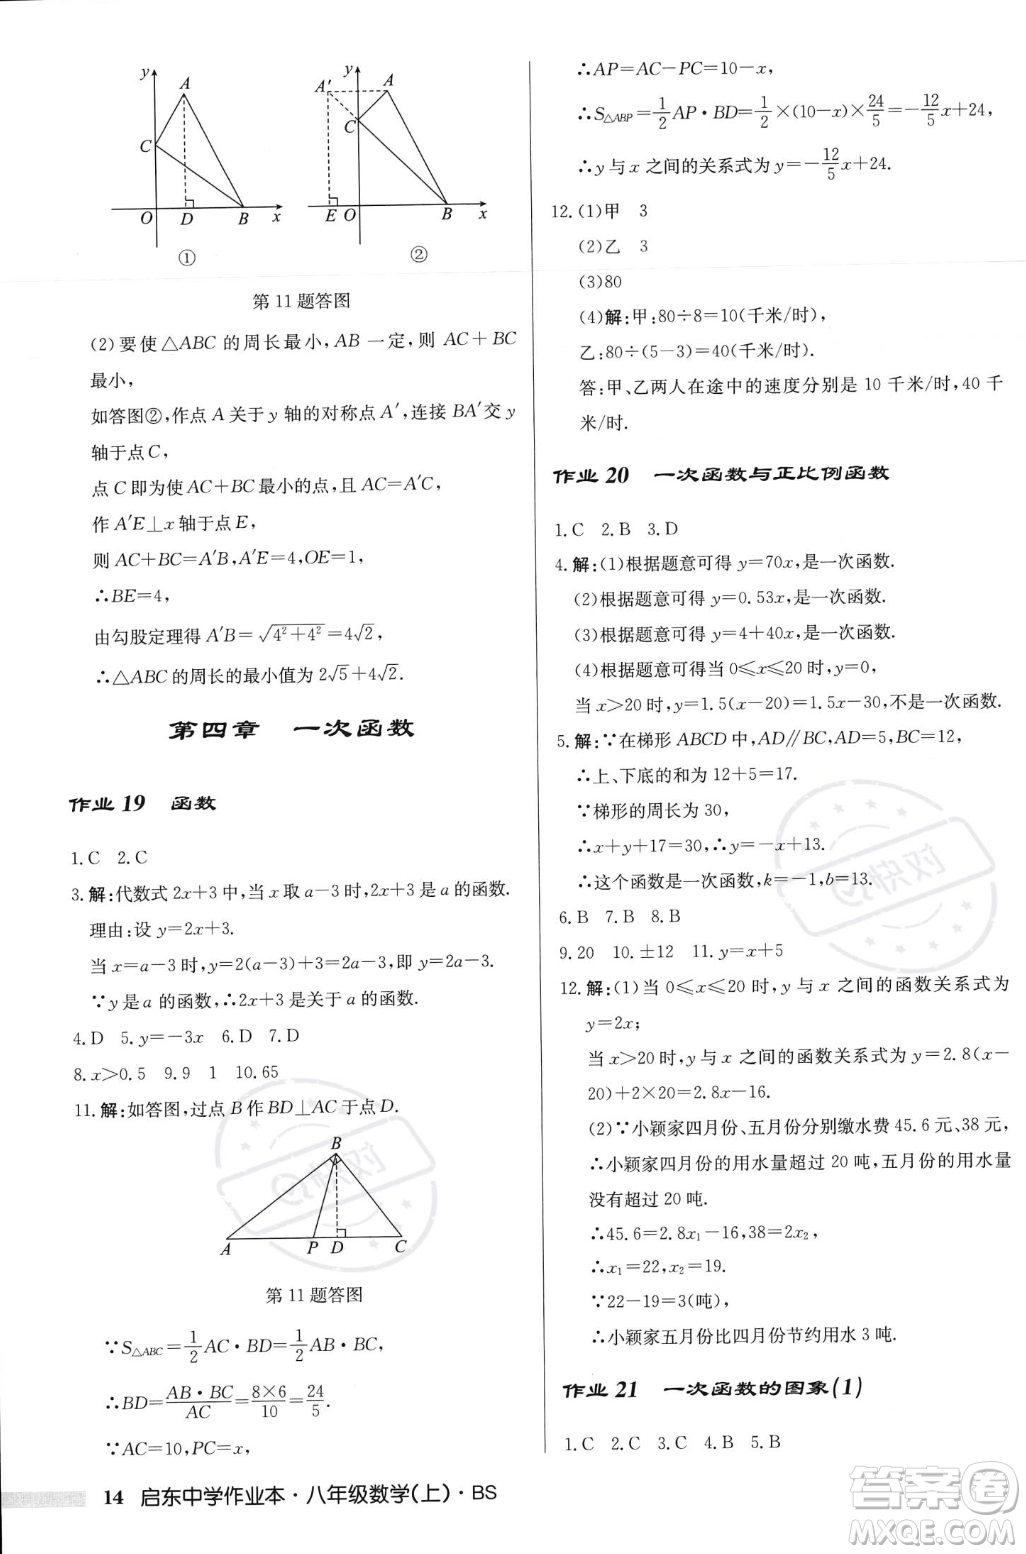 y
A
C
O
D
B
x
①
A′
y
A
C
E
O
B
x
②
第11题答图
(2)要使△ABC 的周长最小,AB 一定,则 AC+BC
最小,
如答图②,作点 A 关于 y 轴的对称点 A′,连接 BA′交 y
轴于点 C,
点 C 即为使 AC+BC 最小的点,且 AC=A′C,
作 A′E⊥x 轴于点 E,
则 AC+BC=A′B,A′E=4,OE=1,
∴BE=4,
由勾股定理得 A′B=√(4²+4²)=4√2,
∴△ABC 的周长的最小值为 2√5+4√2.
第四章 一次函数
作业 19 函数
1.C 2.C
3.解:代数式 2x+3 中,当 x 取 a-3 时,2x+3 是 a 的函数.
理由:设 y=2x+3.
当 x=a-3 时,y=2(a-3)+3,即 y=2a-3.
∵y 是 a 的函数,∴2x+3 是关于 a 的函数.
4.D 5.y=-3x 6.D 7.D
8.x>0.5 9.9 1 10.65
11.解:如答图,过点 B 作 BD⊥AC 于点 D.
B
A
P
D
C
第11题答图
∵S△ABC=1/2 AC·BD=1/2 AB·BC,
∴BD=AB·BC/AC=8×6/10=24/5.
∵AC=10,PC=x,
∴AP=AC-PC=10-x,
∴S△ABP=1/2 AP·BD=1/2×(10-x)×24/5=-12/5 x+24,
∴y 与 x 之间的关系式为 y=-12/5 x+24.
12.(1)甲 3
(2)乙 3
(3)80
(4)解:甲:80÷8=10(千米/时),
乙:80÷(5-3)=40(千米/时).
答:甲、乙两人在途中的速度分别是 10 千米/时,40 千
米/时.
作业 20 一次函数与正比例函数
1.C 2.B 3.D
4.解:(1)根据题意可得 y=70x,是一次函数.
(2)根据题意可得 y=0.53x,是一次函数.
(3)根据题意可得 y=4+40x,是一次函数.
(4)根据题意可得当 0≤x≤20 时,y=0,
当 x>20 时,y=1.5(x-20)=1.5x-30,不是一次函数.
5.解:∵在梯形 ABCD 中,AD∥BC,AD=5,BC=12,
∴上、下底的和为 12+5=17.
∵梯形的周长为 30,
∴x+y+17=30,∴y=-x+13.
∴这个函数是一次函数,k=-1,b=13.
6.B 7.B 8.B
9.20 10.±12 11.y=x+5
12.解:(1)当 0≤x≤20 时,y 与 x 之间的函数关系式为
y=2x;
当 x>20 时,y 与 x 之间的函数关系式为 y=2.8(x-
20)+2×20=2.8x-16.
(2)∵小颖家四月份、五月份分别缴水费 45.6 元、38 元,
∴小颖家四月份的用水量超过 20 吨,五月份的用水量
没有超过 20 吨.
∴45.6=2.8x₁-16,38=2x₂,
∴x₁=22,x₂=19.
∵22-19=3(吨),
∴小颖家五月份比四月份节约用水 3 吨.
作业 21 一次函数的图象(1)
1.C 2.C 3.C 4.B 5.B
14 启东中学作业本·八年级数学(上)·BS
答案圈
MXQE.COM